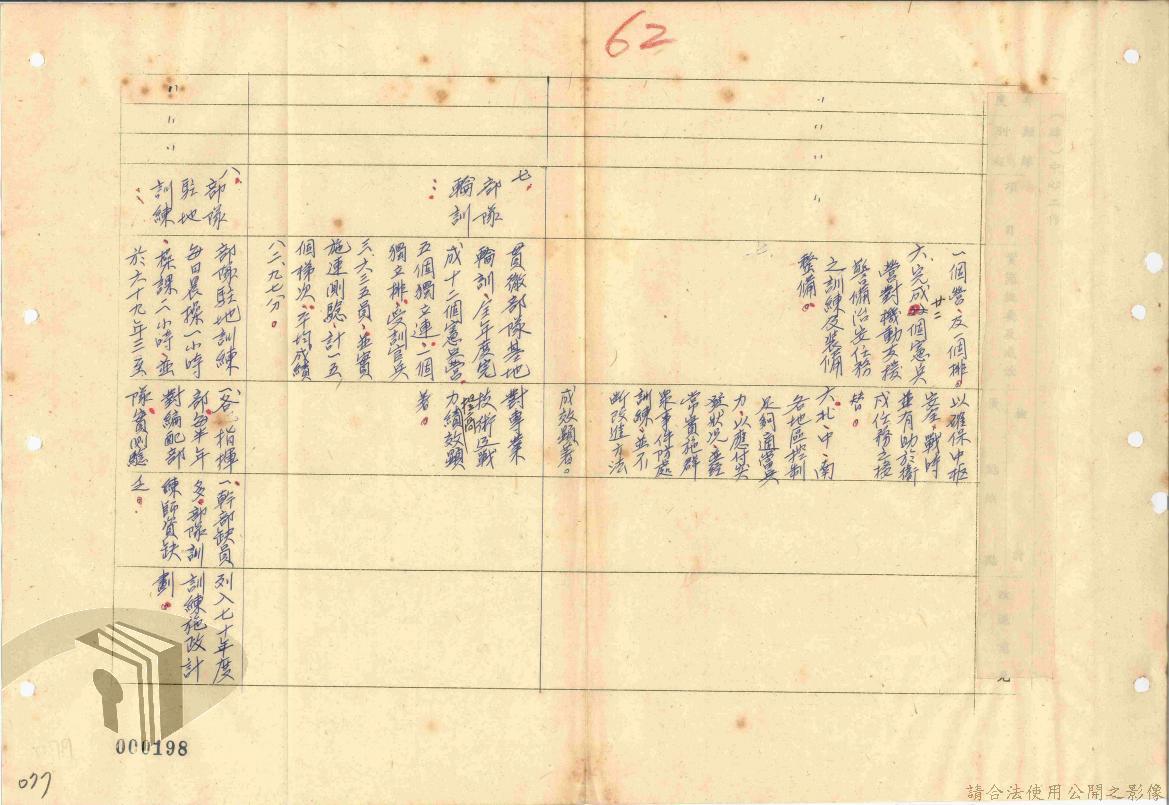 62
〃
〃
〃
〃
一個營、及一個排。
六、完成廿二個憲兵
營對機動支援
警備治安任務
之訓練及裝備
整備。
以確保中樞
安全，戰時
並有助於衛
戍任務之接
替。
六、北、中、南
各地區控制
足夠適當兵
力，以應付突
發狀況，並經
常實施群
眾事件防處
訓練，並不
斷改進方法
成效顯著。
七、
部隊
輪訓
貫徹部隊基地
輪訓，全年度完
成十二個憲兵營、
五個獨立連、一個
獨立排，受訓官兵
三六三五員，並實
施連測驗，計一五
個梯次，平均成績
八二、九七分。
對專業
技術及戰
力提高績效顯
著。
〃
〃
〃
八、部隊
駐地
訓練
部隊駐地訓練
每日晨操一小時
、操課八小時，並
於六十九年三至
一、各指揮
部每半年
對編配部
隊實測驗
一、幹部缺員
多，部隊訓
練師資缺
乏。
列入七十年度
訓練施政計
劃。
000198
077
請合法使用公開之影像